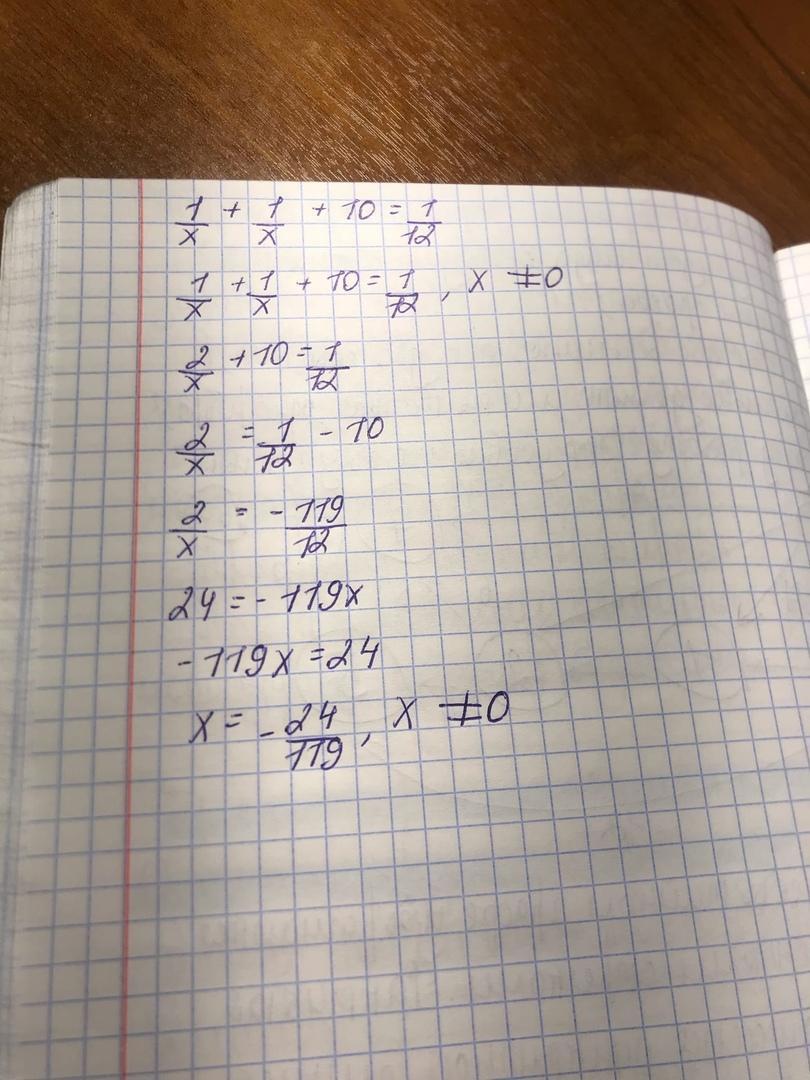 1/x + 1/x + 10 = 1/12
1/x + 1/x + 10 = 1/12 , x ≠ 0
2/x + 10 = 1/12
2/x = 1/12 - 10
2/x = - 119/12
24 = - 119x
- 119x = 24
x = - 24/119 , x ≠ 0